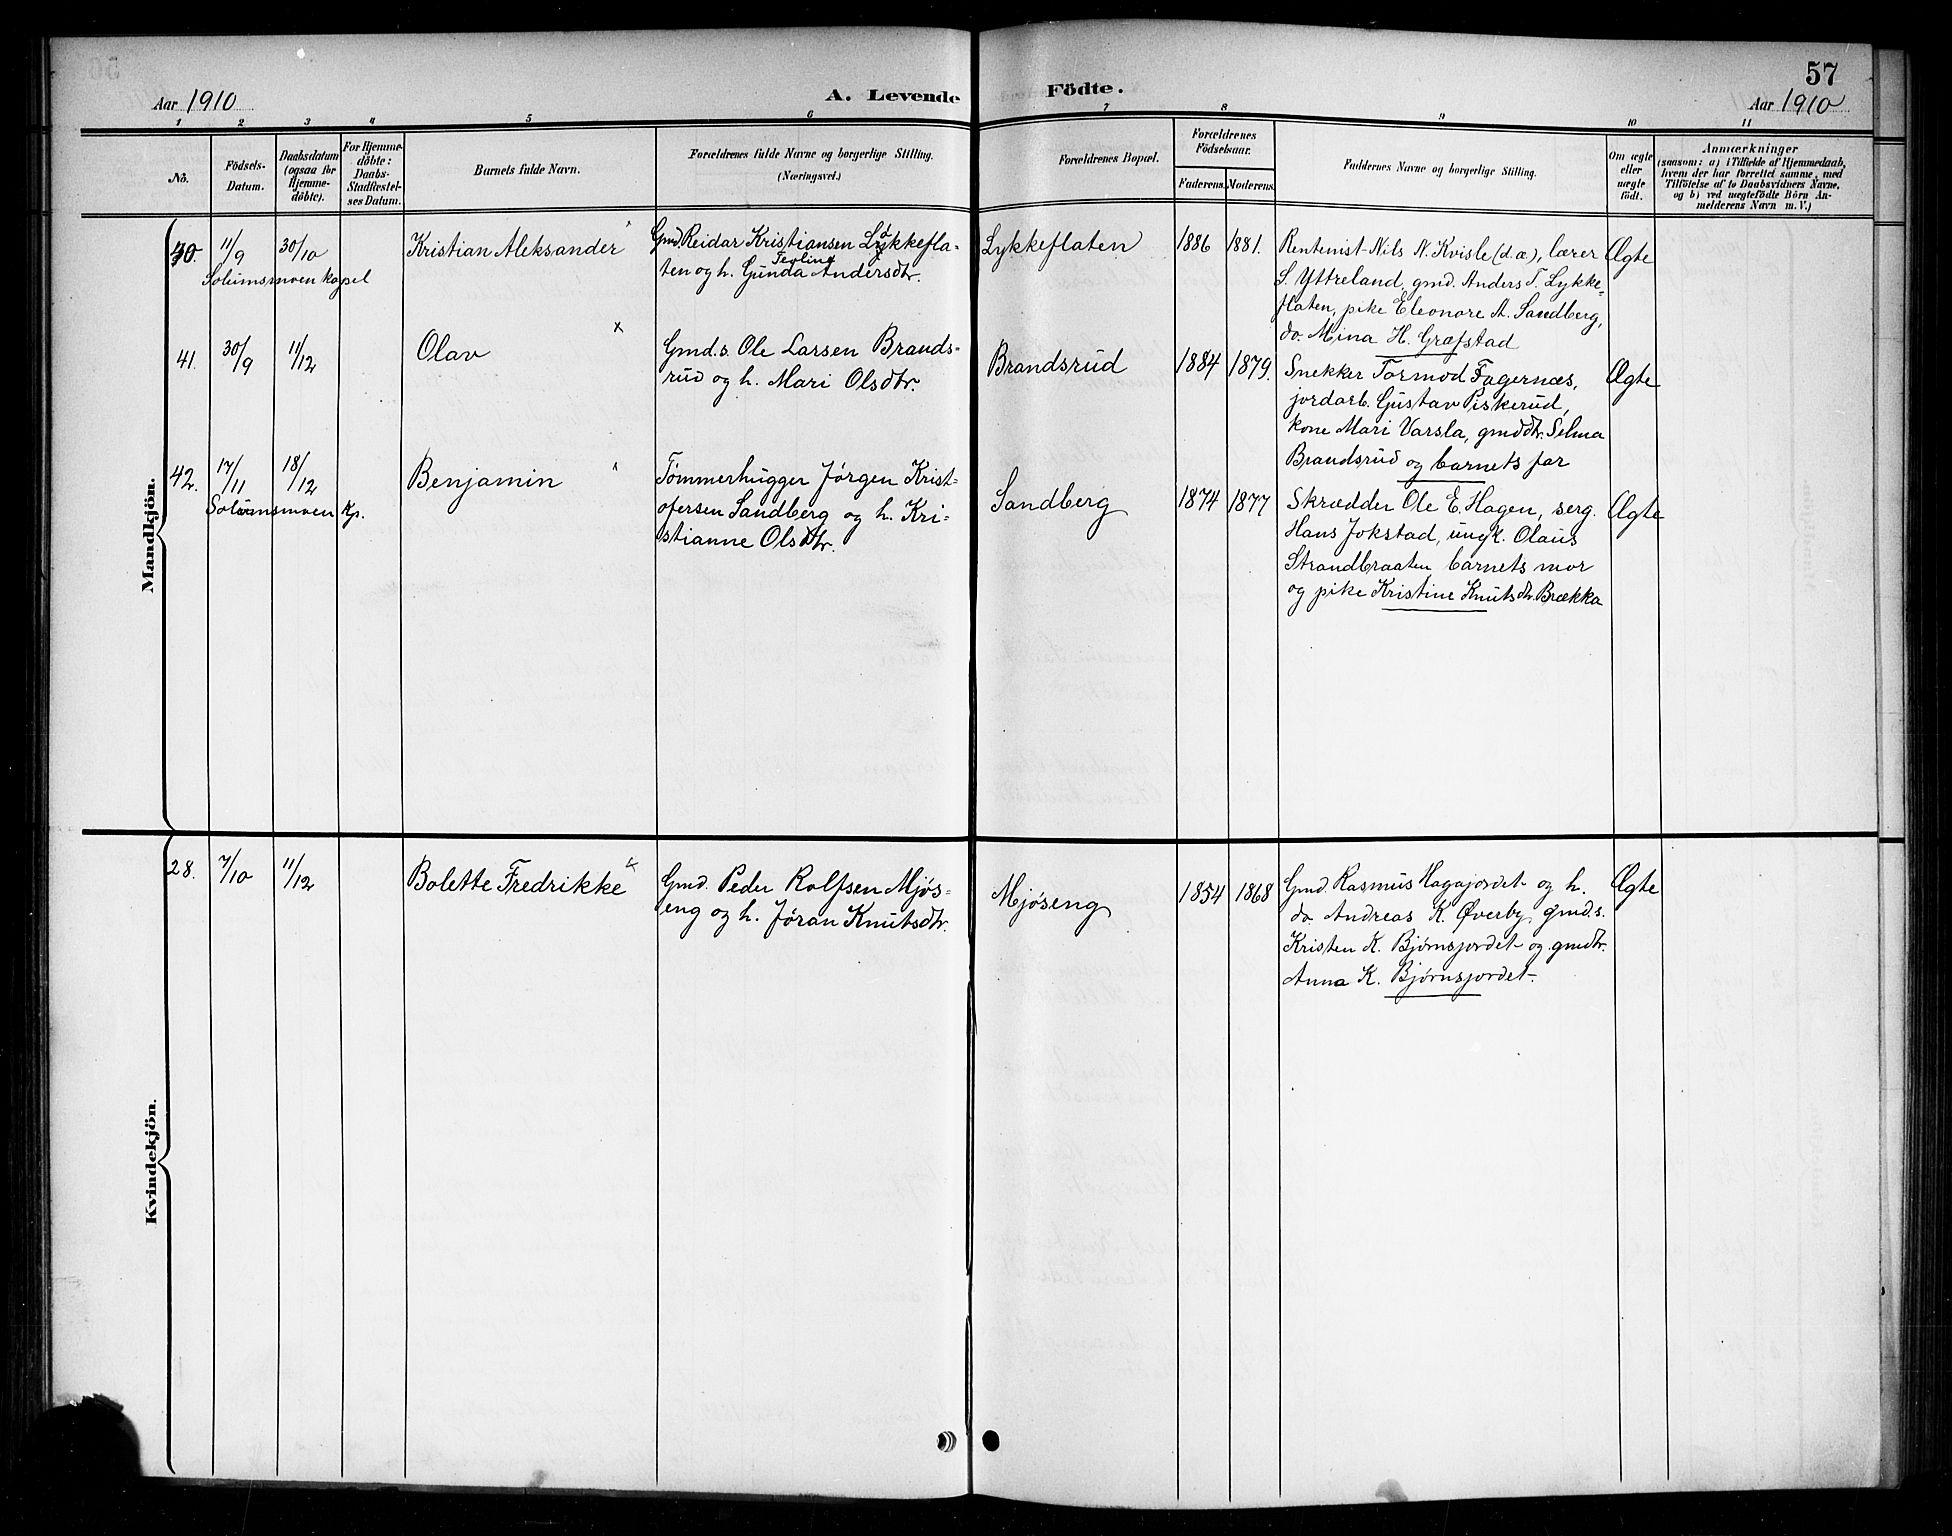 57
Aar 1910
A. Levende Födte.
Aar 1910
1 2 3 4 5 6 7 8 9 10 11
No.
Födsels-
Datum.
Daabsdatum
(ogsaa for
Hjemme-
døbte).
For Hjemme-
døbte:
Daabs-
Stadfæstel-
ses Datum.
Barnets fulde Navn.
Forældrenes fulde Navne og borgerlige Stilling.
(Næringsvei.)
Forældrenes Bopæl.
Forældrenes
Födselsaar.
Faderens. Moderens.
Faddernes Navne og borgerlige Stilling.
Om ægte
eller
uægte
født.
Anmærkninger
(saasom: a) i Tilfælde af Hjemmedaab,
hvem der har forrettet samme, med
Tilföielse af to Daabsvidners Navne,
og b) ved uægtefödte Börn An-
melderens Navn m. V.)
Mandkjön.
40. 11/9 30/10
Solumsmoen kapel
Kristian Aleksander
Gmd. Reidar Kristiansen Lykkefla-
Tevline
ten og h. Gunda Andersdtr.
Lykkeflaten
1886 1881.
Rentenist Nils N. Kvisle (d.æ), lærer
S. Yttreland, gmd. Anders T. Lykke-
flaten, pike Eleonore A. Sandberg,
do. Mina H. Græfstad
Ægte
41. 30/9 11/12
Olav
Gmd.s. Ole Larsen Brands-
rud og h. Mari Olsdtr.
Brandsrud
1884 1879.
Snekker Tormod Fagernæs,
jordarb. Gustav Piskerud,
kone Mari Varsla, gmddtr. Selma
Brandsrud og barnets far
Ægte
42. 17/11 18/12
Solumsmoen Kp.
Benjamin
Tømmerhugger Jørgen Krist-
ofersen Sandberg og h. Kri-
stianne Olsdtr.
Sandberg
1874 1877
Skrædder Ole E. Hagen, serg.
Hans Jokstad, ungk. Olaus
Strandbraaten barnets mor
og pike Kristine Knutsdtr. Brækka
Ægte
Kvindekjön.
28. 7/10 11/12
Bolette Fredrikke
Gmd. Peder Rolfsen Mjøs-
eng og h. Jøran Knutsdtr.
Mjøseng
1854 1868
Gmd. Rasmus Hagajordet og h.
do Andreas K. Øverby, gmd.s.
Kristen K. Bjørnsjordet og gmdtr.
Anna K. Bjørnsjordet.
Ægte